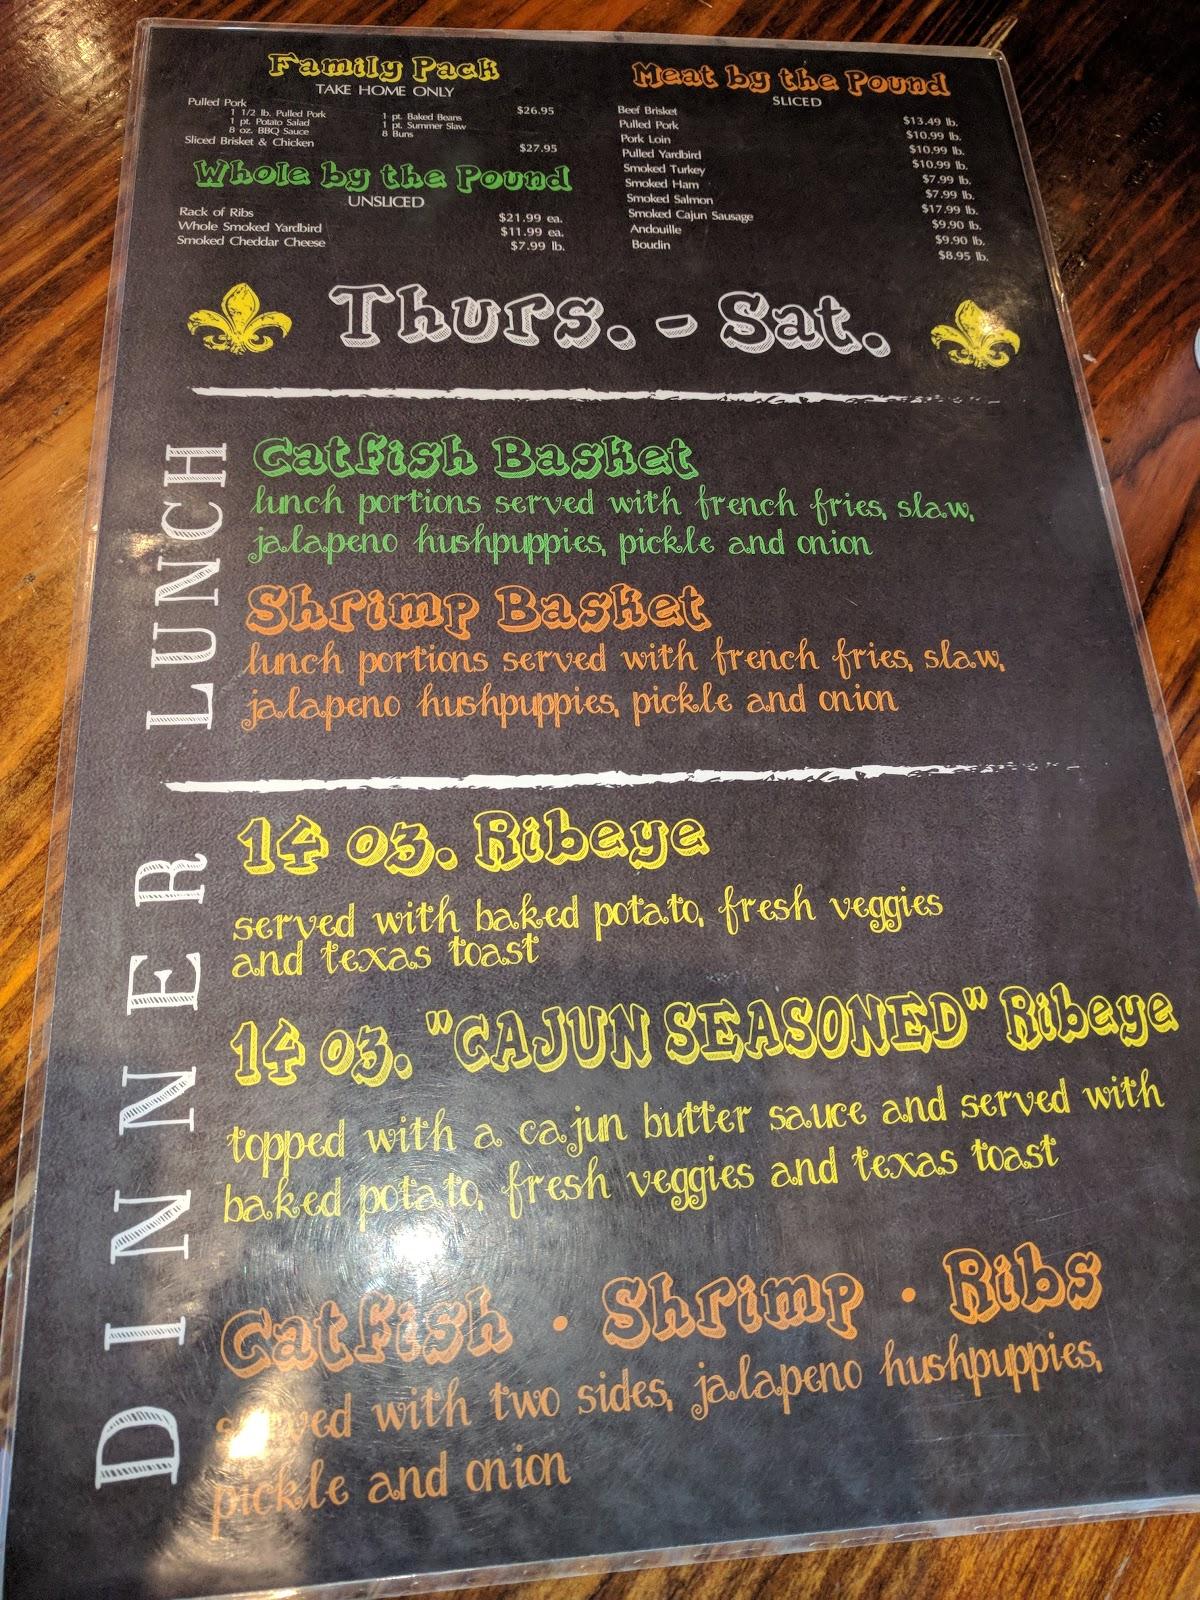 Family Pack
TAKE HOME ONLY
Pulled Pork $26.95
1 1/2 lb. Pulled Pork 1 pt. Baked Beans
1 pt. Potato Salad 1 pt. Summer Slaw
8 oz. BBQ Sauce 8 Buns
Sliced Brisket & Chicken $27.95
Whole by the Pound
UNSLICED
Rack of Ribs $21.99 ea.
Whole Smoked Yardbird $11.99 ea.
Smoked Cheddar Cheese $7.99 lb.
Meat by the Pound
SLICED
Beef Brisket $13.49 lb.
Pulled Pork $10.99 lb.
Pork Loin $10.99 lb.
Pulled Yardbird $10.99 lb.
Smoked Turkey $7.99 lb.
Smoked Ham $7.99 lb.
Smoked Salmon $17.99 lb.
Smoked Cajun Sausage $9.90 lb.
Andouille $9.90 lb.
Boudin $8.95 lb.
Thurs. - Sat.
LUNCH
Catfish Basket
lunch portions served with french fries, slaw,
jalapeno hushpuppies, pickle and onion
Shrimp Basket
lunch portions served with french fries, slaw,
jalapeno hushpuppies, pickle and onion
DINNER
14 oz. Ribeye
served with baked potato, fresh veggies
and texas toast
14 oz. "CAJUN SEASONED" Ribeye
topped with a cajun butter sauce and served with
baked potato, fresh veggies and texas toast
Catfish · Shrimp · Ribs
served with two sides, jalapeno hushpuppies,
pickle and onion